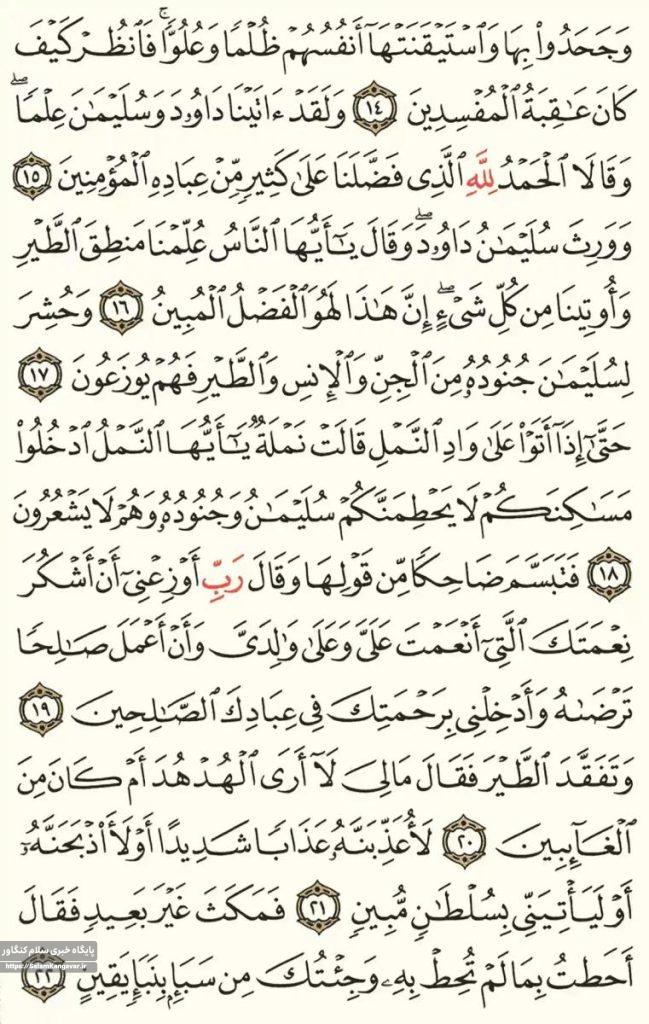 وَجَحَدُوا۟ بِهَا وَٱسْتَيْقَنَتْهَآ أَنفُسُهُمْ ظُلْمًا وَعُلُوًّا ۚ فَٱنظُرْ كَيْفَ
كَانَ عَـٰقِبَةُ ٱلْمُفْسِدِينَ ١٤ وَلَقَدْ ءَاتَيْنَا دَاوُۥدَ وَسُلَيْمَـٰنَ عِلْمًا ۖ
وَقَالَا ٱلْحَمْدُ لِلَّهِ ٱلَّذِى فَضَّلَنَا عَلَىٰ كَثِيرٍ مِّنْ عِبَادِهِ ٱلْمُؤْمِنِينَ ١٥
وَوَرِثَ سُلَيْمَـٰنُ دَاوُۥدَ ۖ وَقَالَ يَـٰٓأَيُّهَا ٱلنَّاسُ عُلِّمْنَا مَنطِقَ ٱلطَّيْرِ
وَأُوتِينَا مِن كُلِّ شَىْءٍ ۖ إِنَّ هَـٰذَا لَهُوَ ٱلْفَضْلُ ٱلْمُبِينُ ١٦ وَحُشِرَ
لِسُلَيْمَـٰنَ جُنُودُهُۥ مِنَ ٱلْجِنِّ وَٱلْإِنسِ وَٱلطَّيْرِ فَهُمْ يُوزَعُونَ ١٧
حَتَّىٰٓ إِذَآ أَتَوْا۟ عَلَىٰ وَادِ ٱلنَّمْلِ قَالَتْ نَمْلَةٌ يَـٰٓأَيُّهَا ٱلنَّمْلُ ٱدْخُلُوا۟
مَسَـٰكِنَكُمْ لَا يَحْطِمَنَّكُمْ سُلَيْمَـٰنُ وَجُنُودُهُۥ وَهُمْ لَا يَشْعُرُونَ
١٨ فَتَبَسَّمَ ضَاحِكًا مِّن قَوْلِهَا وَقَالَ رَبِّ أَوْزِعْنِىٓ أَنْ أَشْكُرَ
نِعْمَتَكَ ٱلَّتِىٓ أَنْعَمْتَ عَلَىَّ وَعَلَىٰ وَٰلِدَىَّ وَأَنْ أَعْمَلَ صَـٰلِحًا
تَرْضَىٰهُ وَأَدْخِلْنِى بِرَحْمَتِكَ فِى عِبَادِكَ ٱلصَّـٰلِحِينَ ١٩
وَتَفَقَّدَ ٱلطَّيْرَ فَقَالَ مَا لِىَ لَآ أَرَى ٱلْهُدْهُدَ أَمْ كَانَ مِنَ
ٱلْغَآئِبِينَ ٢٠ لَأُعَذِّبَنَّهُۥ عَذَابًا شَدِيدًا أَوْ لَأَا۟ذْبَحَنَّهُۥٓ
أَوْ لَيَأْتِيَنِّى بِسُلْطَـٰنٍ مُّبِينٍ ٢١ فَمَكَثَ غَيْرَ بَعِيدٍ فَقَالَ
أَحَطتُ بِمَا لَمْ تُحِطْ بِهِۦ وَجِئْتُكَ مِن سَبَإٍۭ بِنَبَإٍ يَقِينٍ ٢٢
پایگاه خبری سلام کنگاور
https://SalamKangavar.ir